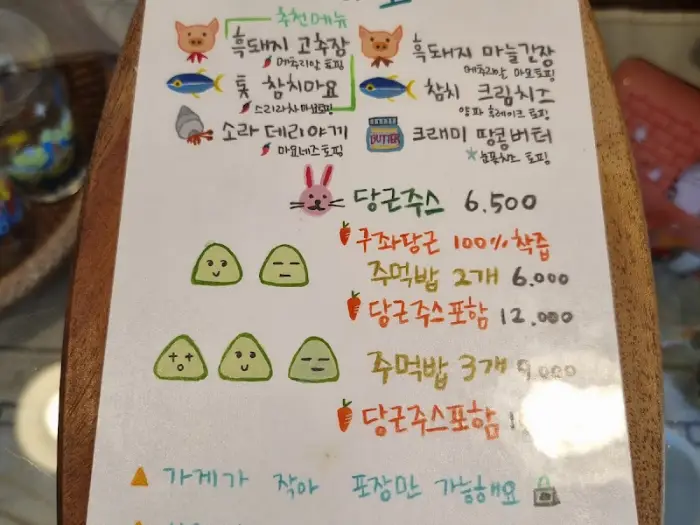 추천메뉴
흑돼지 고추장
메추리알 토핑
흑돼지 마늘간장
메추리알 마요토핑
톳 참치마요
스리라차마요토핑
참치 크림치즈
양파 후레이크 토핑
소라 데리야끼
마요네즈토핑
BUTTER
크래미 땅콩버터
눈꽃치즈 토핑
당근주스 6.500
구좌당근 100% 착즙
주먹밥 2개 6.000
당근주스포함 12.000
주먹밥 3개 9.000
당근주스포함
가게가 작아 포장만 가능해요